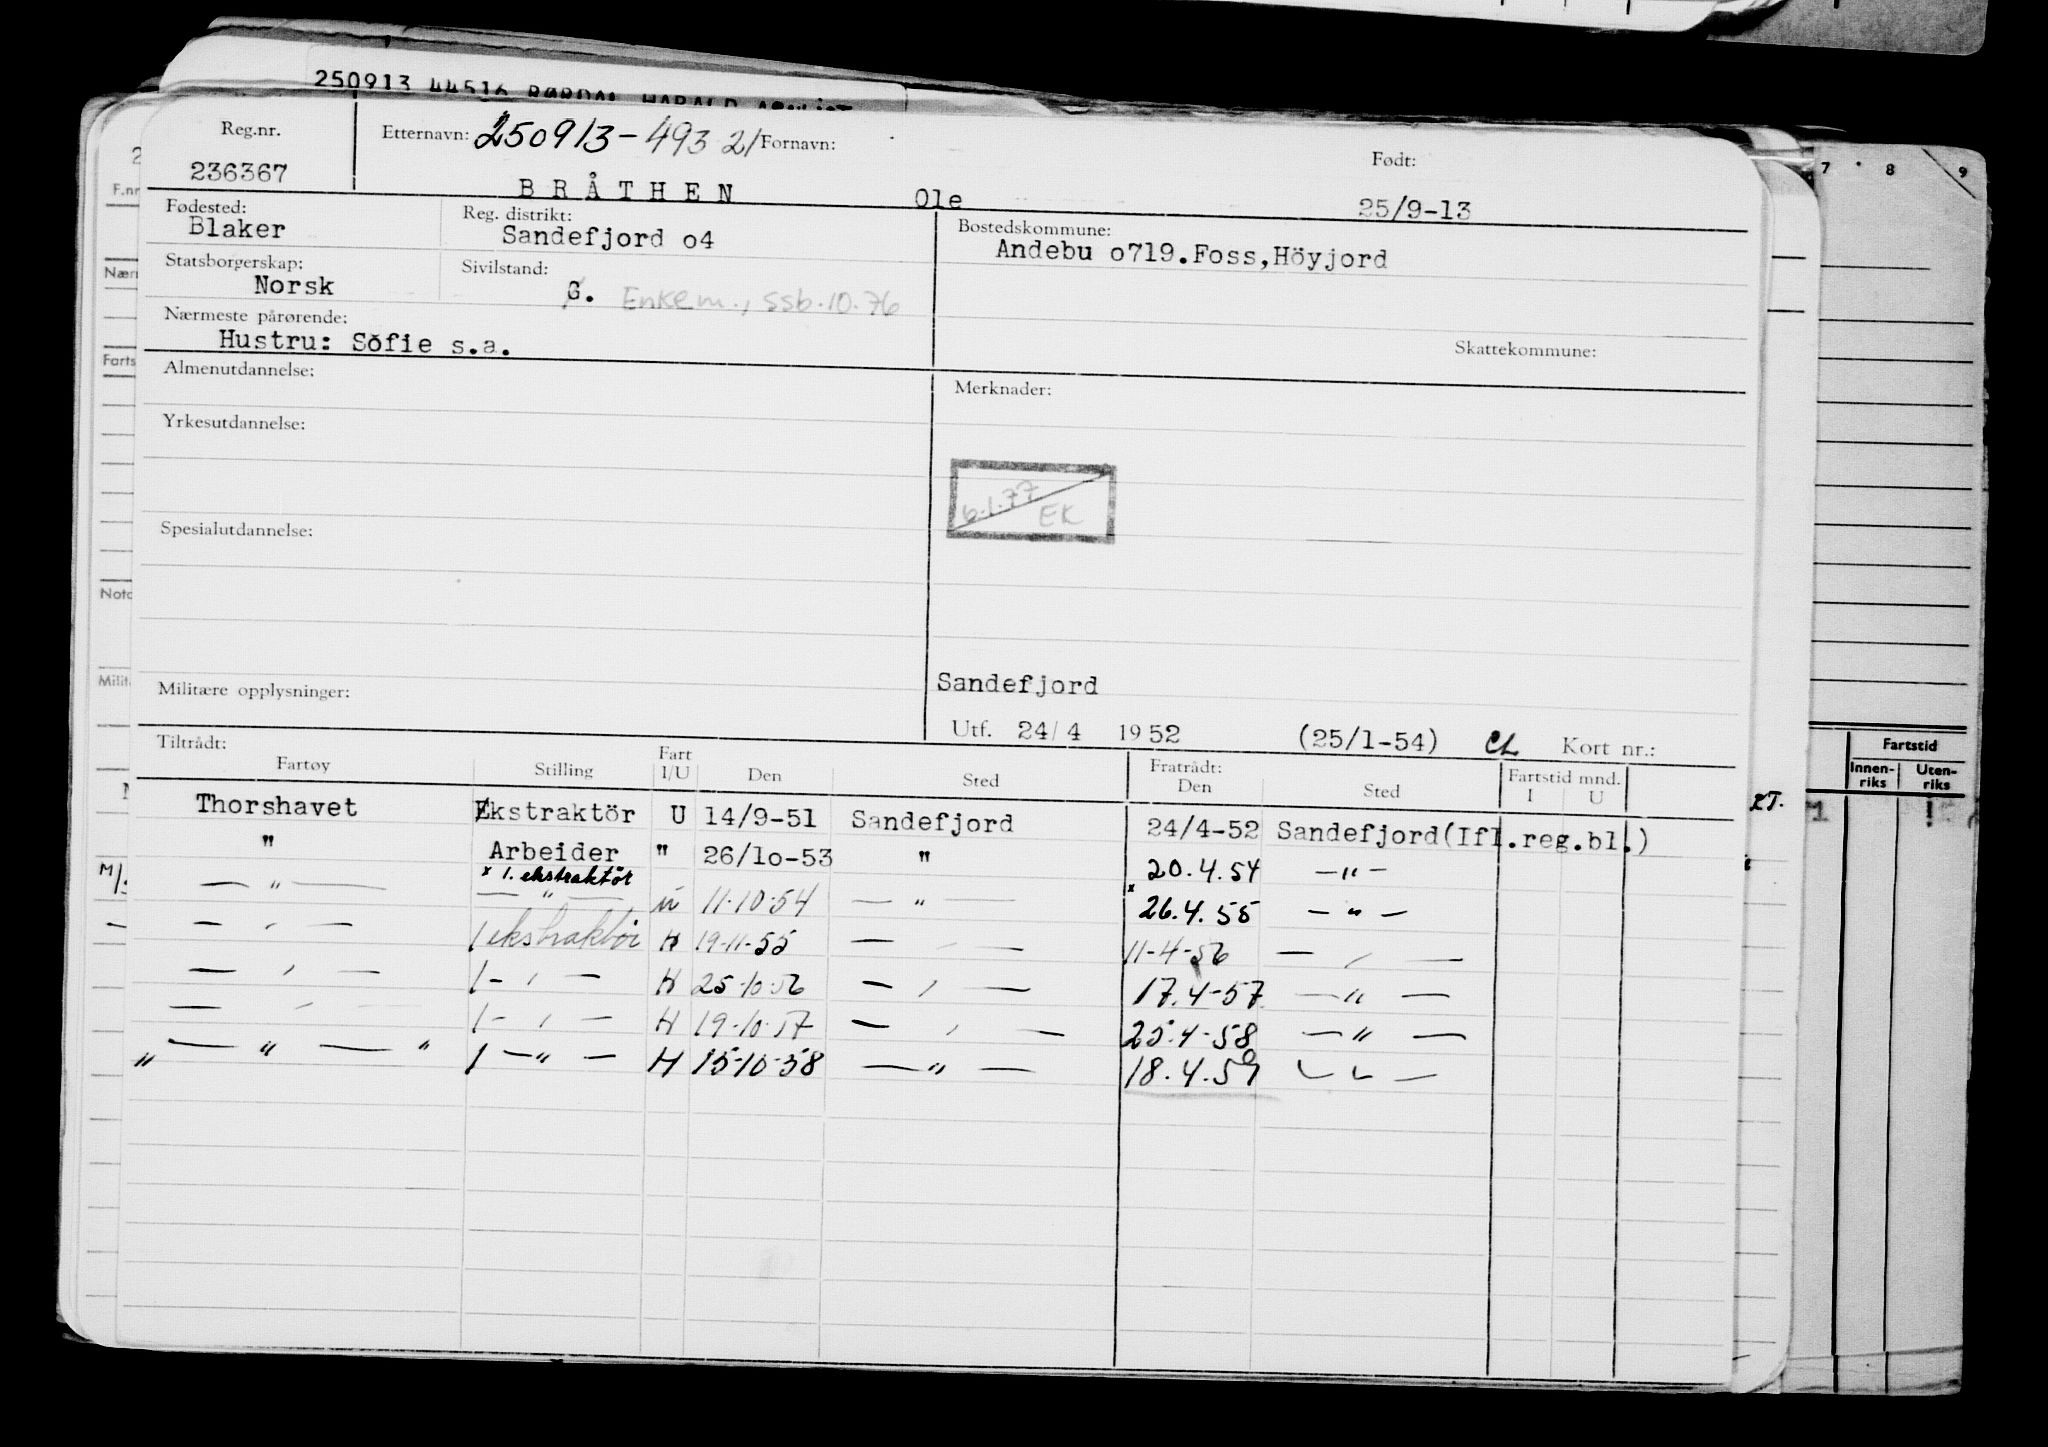 250913 44516 RØRDAL HARALD
Reg.nr. Etternavn: 250913-493 21 Fornavn: Født:
236367 BRÅTHEN Ole 25/9-13
Fødested: Reg. distrikt: Bostedskommune:
Blaker Sandefjord o4 Andebu o719.Foss,Höyjord
Statsborgerskap: Sivilstand:
Norsk G. Enkem., ssb.10.76
Nærmeste pårørende:
Hustru: Sofie s.a. Skattekommune:
Almenutdannelse: Merknader:
Yrkesutdannelse:
6.1.77 EK
Spesialutdannelse:
Sandefjord
Militære opplysninger:
Utf. 24/4 1952 (25/1-54) CL Kort nr.:
Tiltrådt: Fratrådt:
Fartøy Stilling Fart I/U Den Sted Den Sted Fartstid mnd. I U
Thorshavet Ekstraktör U 14/9-51 Sandefjord 24/4-52 Sandefjord(Ifl.reg.bl.)
" Arbeider " 26/1o-53 " 20.4.54 — " —
x 1. ekstraktör
— " — — " — u 11.10.54 — " — x 26.4.55 — " —
— " — 1 ekstraktör H 19-11-55 — " — 11-4-56 — " —
— " — 1 — " — H 25-10-56 — " — 17.4-57 — " —
— " — 1 — " — H 19-10-57 — " — 25.4-58 — " —
" — " — " 1 — " — H 15-10-58 — " — 18.4.59 — " —
7 8 9
F.nr
Nær
Farts
Nota
Milit
M/s
Fartstid
Innen-riks Uten-riks